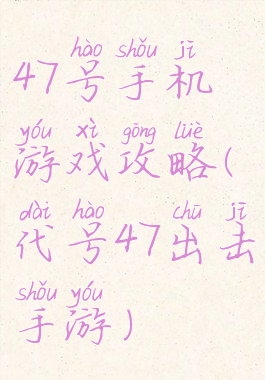 hào shǒu jī
47号手机
yóu xì gōng lüè
游戏攻略(
dài hào chū jī
代号47出击
shǒu yóu
手游)